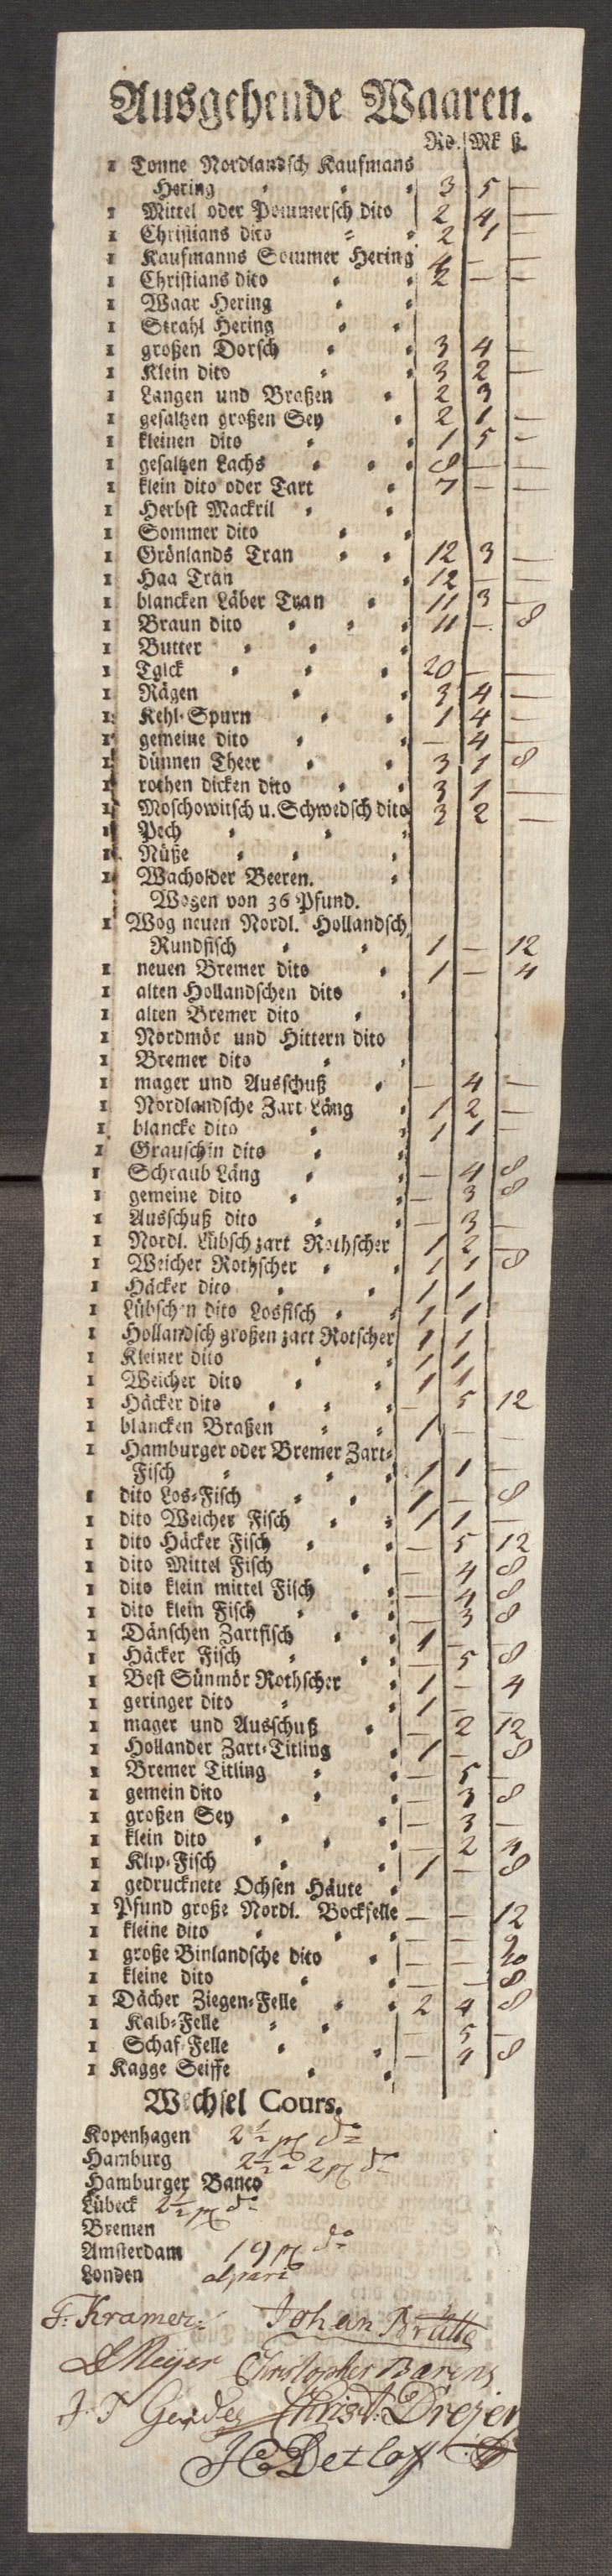 Ausgehende Waaren.
Rd. Mk ß.
1 Tonne Nordlandsch Kaufmans
Hering 3 5 —
1 Mittel oder Pommersch dito 2 4 —
1 Christians dito 2 1 —
1 Kaufmanns Sommer Hering 4 — —
1 Christians dito 2 — —
1 Waar Hering
1 Strahl Hering
1 großen Dorsch 3 4 —
1 Klein dito 3 2 —
1 Langen und Braßen 2 3
1 gesaltzen großen Sey 2 1 —
1 kleinen dito 1 5 —
1 gesaltzen Lachs 8 — —
1 klein dito oder Tart 7 — —
1 Herbst Mackril
1 Sommer dito
1 Grönlands Tran 12 3 —
1 Haa Tran 12 — —
1 blancken Läber Tran 11 3 —
1 Braun dito 11 — 8
1 Butter
1 Talck 20 — —
1 Rägen 3 4 —
1 Kehl-Spurn 1 4 —
1 gemeine dito — 4 —
1 dünnen Theer 3 1 8
1 rothen dicken dito 3 1 —
1 Moschowitsch u. Schwedsch dito 3 2 —
1 Pech
1 Nüße
1 Wacholder Beeren.
Wogen von 36 Pfund.
1 Wog neuen Nordl. Hollandsch
Rundfisch 1 — 12
1 neuen Bremer dito 1 — 4
1 alten Hollandschen dito
1 alten Bremer dito
1 Nordmör und Hittern dito
1 Bremer dito
1 mager und Ausschuß — 4 —
1 Nordlandsche Zart Läng 1 2 —
1 blancke dito 1 1 —
1 Grauschin dito
1 Schraub Läng — 4 8
1 gemeine dito — 3 8
1 Ausschuß dito — 3 —
1 Nordl. Lübsch zart Rothscher 1 2 —
1 Weicher Rothscher 1 1 8
1 Häcker dito 1 1
1 Lübschen dito Losfisch 1 1
1 Hollandsch großen zart Rotscher 1 1
1 Kleiner dito 1 1
1 Weicher dito 1 1
1 Häcker dito — 5 12
1 blancken Braßen 1 — —
1 Hamburger oder Bremer Zart-
Fisch 1 1 —
1 dito Los-Fisch 1 — 8
1 dito Weicher Fisch 1 1 —
1 dito Häcker Fisch — 5 12
1 dito Mittel Fisch 4 8
1 dito klein mittel Fisch — 4 8
1 dito klein Fisch — 3 8
1 Dänschen Zartfisch 1 —
1 Häcker Fisch — 5 8
1 Best Sünmör Rothscher 1 — 4
1 geringer dito 1 —
1 mager und Ausschuß — 2 12
1 Hollander Zart-Titling 1 — 8
1 Bremer Titling — 5 —
1 gemein dito — 3 8
1 großen Sey — 3 —
1 klein dito — 2 4
1 Klip-Fisch 1 — 8
1 gedrucknete Ochsen Häute
1 Pfund große Nordl. Bockfelle — — 12
1 kleine dito — —
1 große Binlandsche dito — —
1 kleine dito — — 8
1 Dächer Ziegen-Felle 2 4 8
1 Kalb-Felle — 5 —
1 Schaf-Felle — 4 8
1 Kagge Seiffe
Wechsel Cours.
Kopenhagen 2 1/2 do
Hamburg 2 1/2 a 2 do
Hamburger Banco
Lübeck 2 1/2 do
Bremen
Amsterdam 19 do
Londen alpari
F. Kramer. Johan Brütte
Meijer Christopher Barens
Gerdes Christ. Drejer
JC Detloff